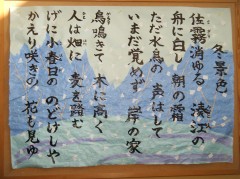 冬景色
佐霧消ゆる 湊江の
舟に白し 朝の霜
ただ水鳥の 声はして
いまだ覚めず 岸の家
烏鳴きて 木に高く
人は畑に 麦を踏む
げに小春日の のどけしや
かえり咲きの 花も見ゆ